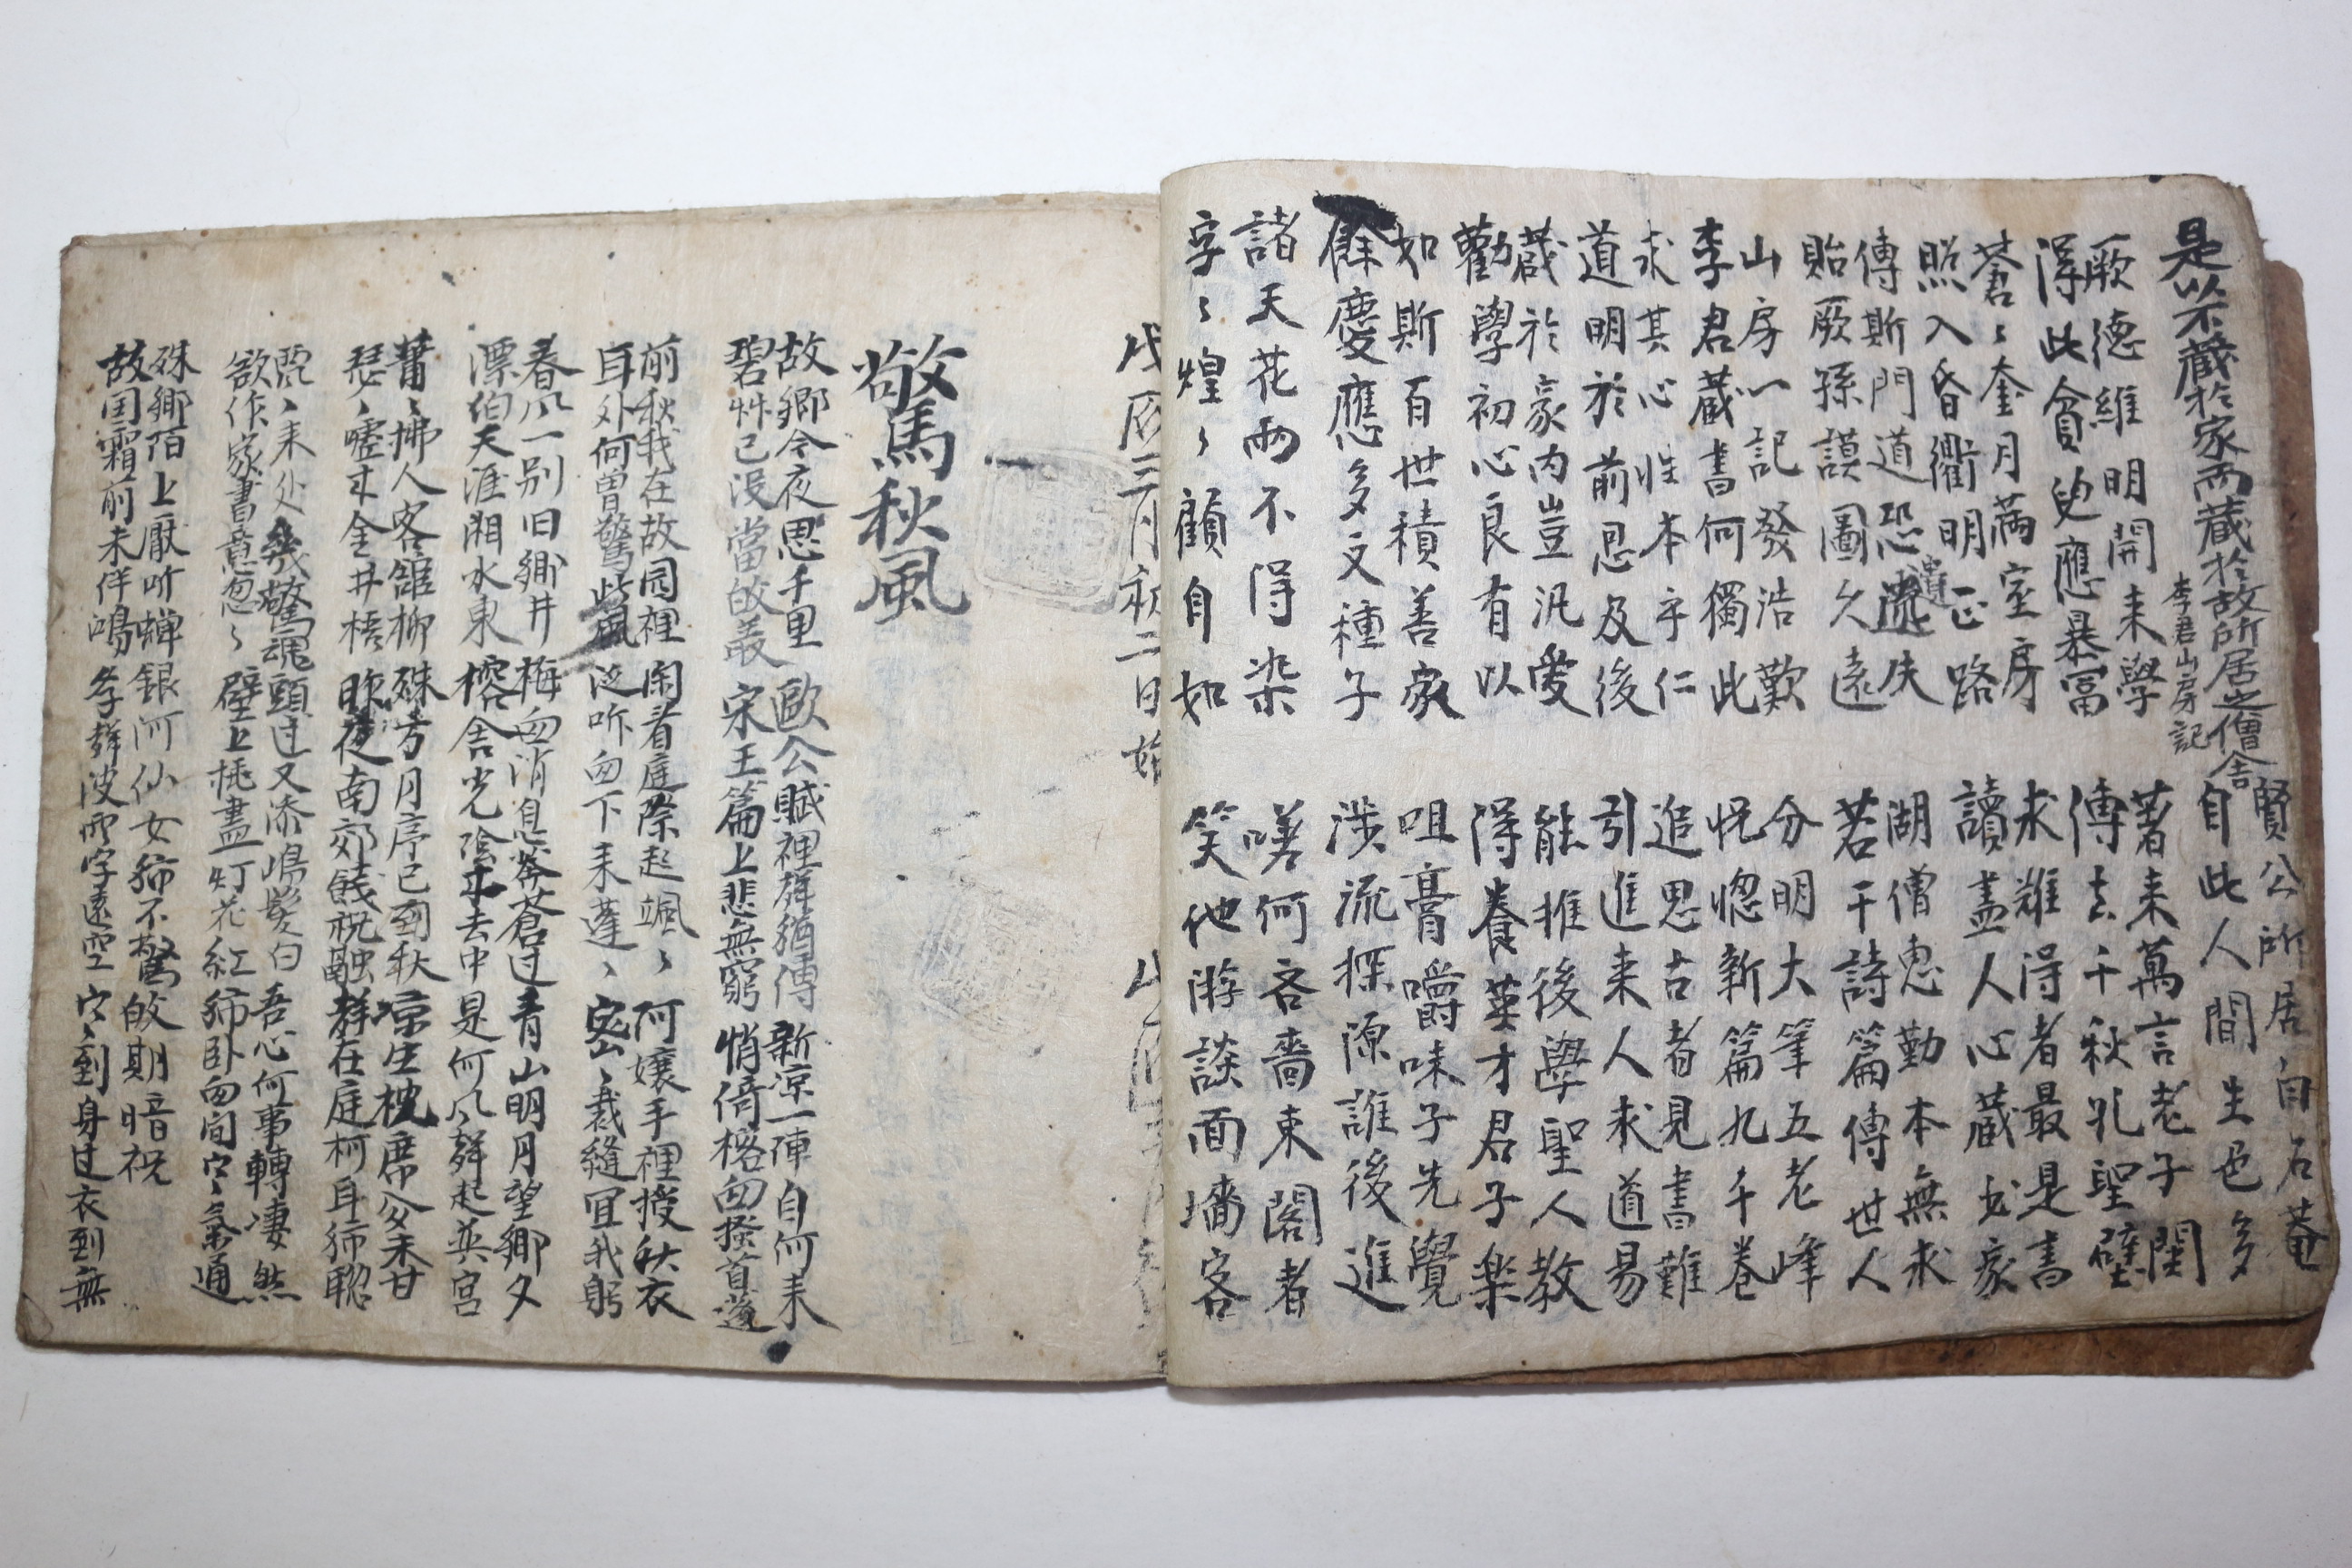 是以不藏於家而藏於故所居之僧舍
李君山房記
厥德維明開来學 賢公所居白石菴
得此貧兒應暴富 自此人間生色多
蒼〻奎月滿室房 著来萬言老子關
照入昏衢明正路 傳去千秋孔聖壁
傳斯門道恐遺失 求難得者最是書
貽厥孫謨圖久遠 讀盡人心藏書家
山房一記發浩歎 湖僧惠勤本無求
李君藏書何獨此 若干詩篇傳世人
求其心性本乎仁 分明大筆五老峰
道明於前思及後 恍惚新篇九千卷
藏於家内豈汎愛 追思古者見書難
勸學初心良有以 引進来人求道易
如斯百世積善家 能推後學聖人教
餘慶應多文種子 得養英才君子樂
諸天花雨不得染 咀膏嚼味子先覺
字〻煌〻顧自如 涉流探源誰後進
嗟何吝嗇東閣者
笑他游談面墻客
戊辰三月初二日始
驚秋風
故鄉今夜思千里 歐公賦裡聲猶傳 新凉一陣自何来
碧草已没當 宋玉篇上悲無窮 悄倚楹回搔首蓬
前秋我在故园裡 閑看庭際起颯〻 阿孃手裡授秋衣
耳外何曾驚此風 泛听回下来蓬〻 密〻裁縫宜我躬
春风一别旧鄉井 梅回消息 蒼过 青山明月望鄉夕
漂伯天涯湘水東 舍光陰来去中 是何风聲起英宮
拂人客舘柳 殊方月序已到秋 凉生枕席分未甘
瑟〻嘘来金井梧 昨夜南郊餞祝融 群在庭柯耳 聰
来处幾驚魂 頭过又添 髮白 吾心何事轉凄然
欲作家書意忽〻 壁上挑盡灯花紅 卧回間 氣通
殊鄉陌上厭听蟬 銀河仙女 不驚 期暗祝
故国霜前未伴鴻 聲波雲字遠空 到身过衣到無